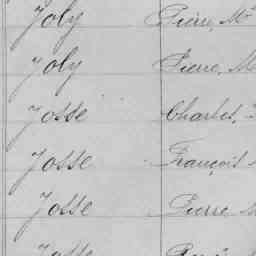 Joly Pierre, M
Joly Pierre, M
Josse Charles,
Josse François
Josse Pierre
Josse